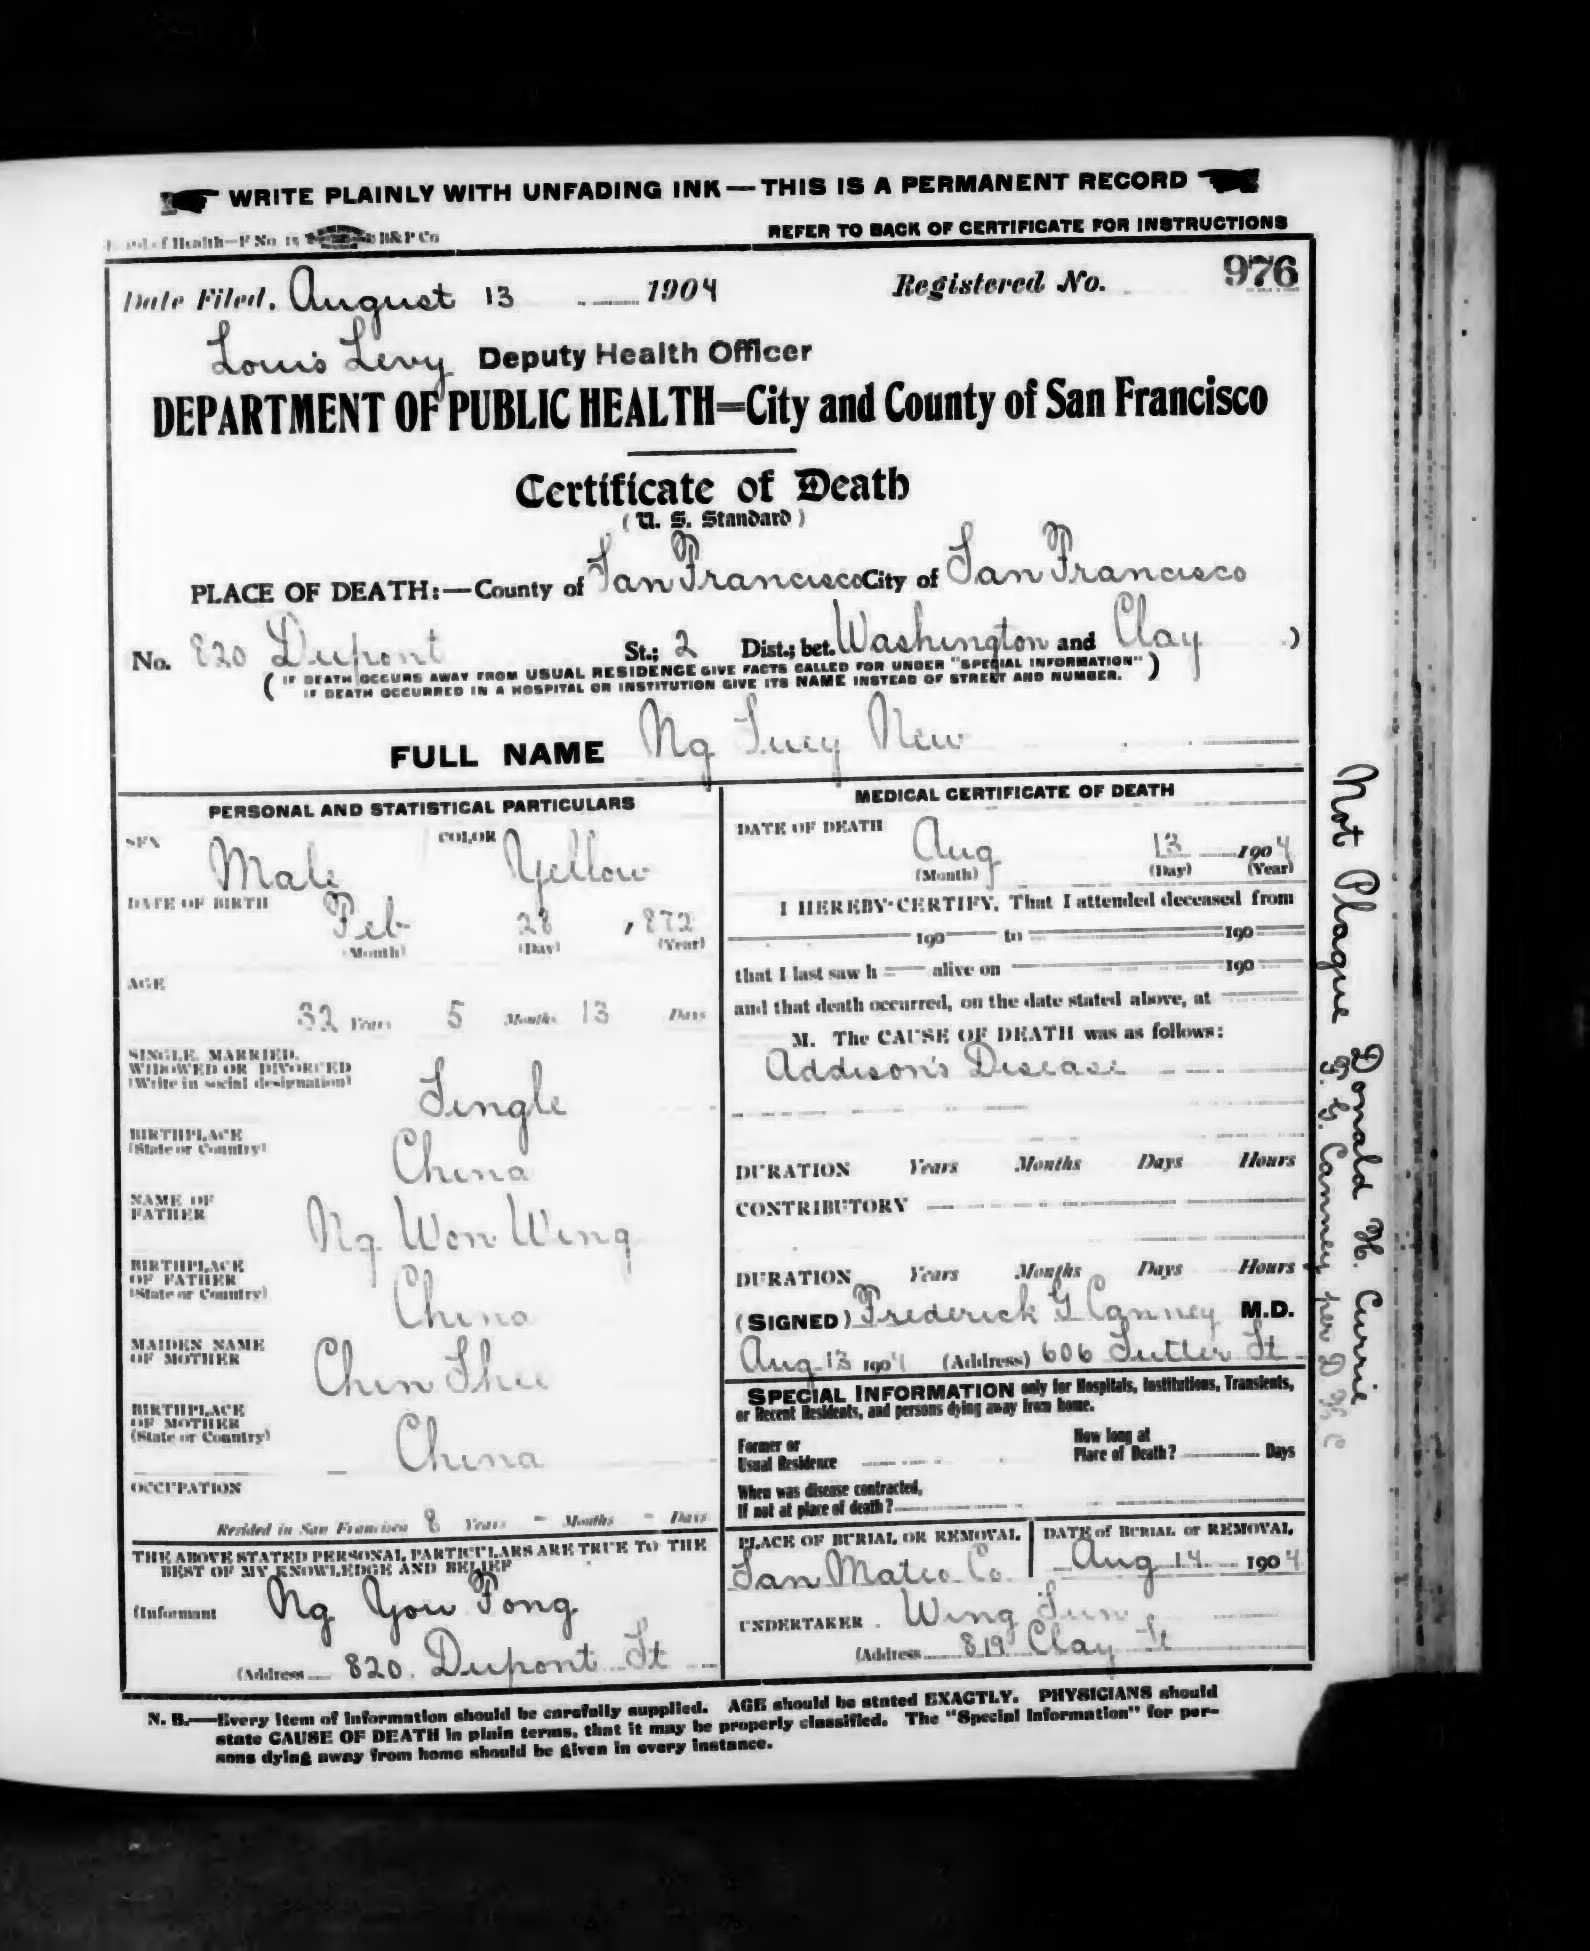 WRITE PLAINLY WITH UNFADING INK — THIS IS A PERMANENT RECORD
of Health—F No. 15 B&P Co
REFER TO BACK OF CERTIFICATE FOR INSTRUCTIONS
Date Filed, August 13 1904 Registered No. 976
Louis Levy Deputy Health Officer
DEPARTMENT OF PUBLIC HEALTH=City and County of San Francisco
Certificate of Death
(U. S. Standard)
PLACE OF DEATH:—County of San Francisco City of San Francisco
No. 820 Dupont St.; 2 Dist.; bet. Washington and Clay )
( IF DEATH OCCURS AWAY FROM USUAL RESIDENCE GIVE FACTS CALLED FOR UNDER "SPECIAL INFORMATION" )
IF DEATH OCCURRED IN A HOSPITAL OR INSTITUTION GIVE ITS NAME INSTEAD OF STREET AND NUMBER.
FULL NAME Ng Suey New
PERSONAL AND STATISTICAL PARTICULARS
SEX Male COLOR Yellow
DATE OF BIRTH Feb 28 , 872
(Month) (Day) (Year)
AGE
32 Years 5 Months 13 Days
SINGLE, MARRIED,
WIDOWED OR DIVORCED
(Write in social designation) Single
BIRTHPLACE
(State or Country) China
NAME OF
FATHER Ng Won Wing
BIRTHPLACE
OF FATHER
(State or Country) China
MAIDEN NAME
OF MOTHER Chin Shee
BIRTHPLACE
OF MOTHER
(State or Country) China
OCCUPATION
Resided in San Francisco 8 Years - Months - Days
THE ABOVE STATED PERSONAL PARTICULARS ARE TRUE TO THE
BEST OF MY KNOWLEDGE AND BELIEF
(Informant Ng You Fong
(Address 820 Dupont St
MEDICAL CERTIFICATE OF DEATH
DATE OF DEATH Aug 13 1904
(Month) (Day) (Year)
I HEREBY CERTIFY, That I attended deceased from
190 to 190
that I last saw h alive on 190
and that death occurred, on the date stated above, at
M. The CAUSE OF DEATH was as follows:
Addison's Disease
DURATION Years Months Days Hours
CONTRIBUTORY
DURATION Years Months Days Hours
(SIGNED) Frederick G Canney M.D.
Aug 13 1904 (Address) 606 Sutter St
SPECIAL INFORMATION only for Hospitals, Institutions, Transients,
or Recent Residents, and persons dying away from home.
Former or
Usual Residence
How long at
Place of Death? Days
When was disease contracted,
If not at place of death?
PLACE OF BURIAL OR REMOVAL DATE of BURIAL or REMOVAL
San Mateo Co. Aug 14 1904
UNDERTAKER Wing Sun
(Address 819 Clay St
N. B.—Every item of information should be carefully supplied. AGE should be stated EXACTLY. PHYSICIANS should
state CAUSE OF DEATH in plain terms, that it may be properly classified. The "Special Information" for per-
sons dying away from home should be given in every instance.
Not Plague Donald H. Currie
F. G. Canney per D H C